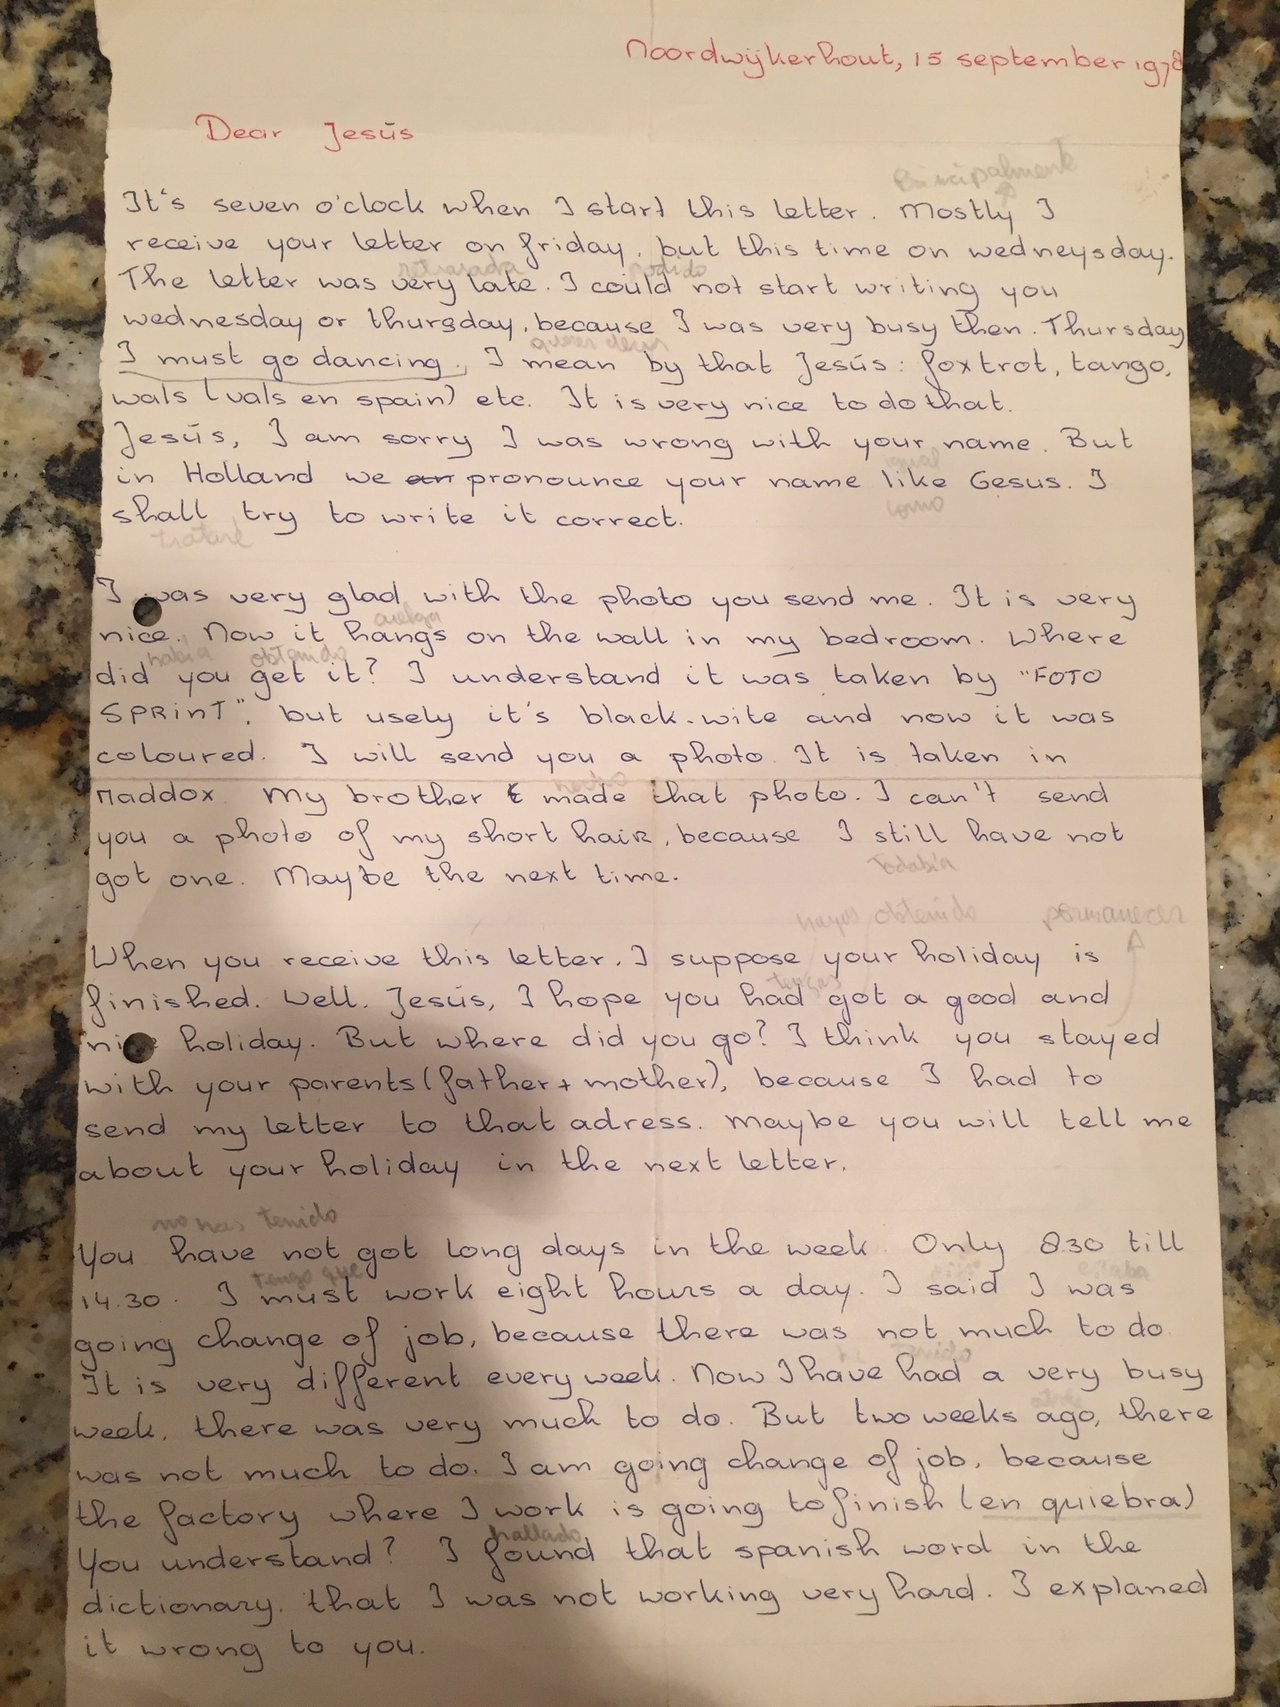 Noordwijkerhout, 15 september 1978
Dear Jesūs
Principalmente
It's seven o'clock when I start this letter. Mostly I
receive your letter on friday, but this time on wedneysday.
retrasada podido
The letter was very late. I could not start writing you
wednesday or thursday, because I was very busy then. Thursday
quiero decir
I must go dancing. I mean by that Jesūs: foxtrot, tango,
wals (vals en spain) etc. It is very nice to do that.
Jesūs, I am sorry I was wrong with your name. But
igual
in Holland we pronounce your name like Gesus. I
como
shall try to write it correct.
trataré
I was very glad with the photo you send me. It is very
cuelga
nice. Now it hangs on the wall in my bedroom. Where
había obtenido
did you get it? I understand it was taken by "FOTO
SPRINT", but usely it's black-wite and now it was
coloured. I will send you a photo. It is taken in
Maddox. My brother made that photo. I can't send
you a photo of my short hair, because I still have not
Todabía
got one. Maybe the next time.
hayas obtenido permanecer
When you receive this letter, I suppose your holiday is
tengas
finished. Well, Jesūs, I hope you had got a good and
nice holiday. But where did you go? I think you stayed
with your parents (father + mother), because I had to
send my letter to that adress. Maybe you will tell me
about your holiday in the next letter.
no has tenido
You have not got long days in the week. Only 8.30 till
tengo que estaba
14.30. I must work eight hours a day. I said I was
going change of job, because there was not much to do.
tenido
It is very different every week. Now I have had a very busy
week, there was very much to do. But two weeks ago, there
was not much to do. I am going change of job, because
the factory where I work is going to finish (en quiebra)
hallado
You understand? I found that spanish word in the
dictionary. that I was not working very hard. I explaned
it wrong to you.